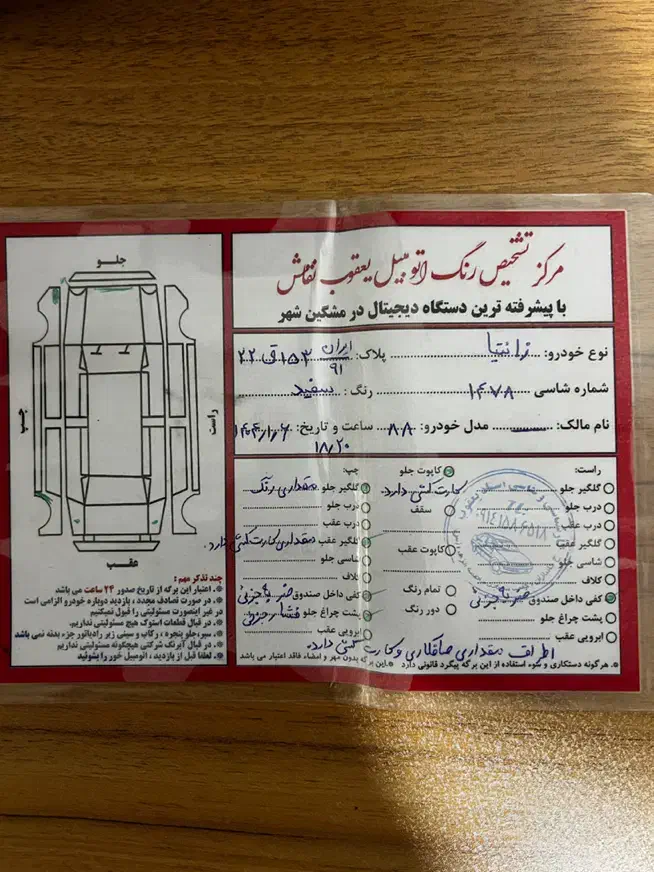 مرکز تشخیص رنگ اتومبیل یعقوب نقاش
با پیشرفته ترین دستگاه دیجیتال در مشگین شهر
نوع خودرو: زانتیا پلاک: ایران ۹۱ ۱۵۳ ق ۲۲
شماره شاسی ۱۴۷۸ رنگ: سفید
نام مالک: مدل خودرو: ۸۸ ساعت و تاریخ:
۱۸/۲۰
راست:
گلگیر جلو
درب جلو
درب عقب
گلگیر عقب
شاسی جلو
گلاف
کفی داخل صندوق ضربه جزئی
پشت چراغ جلو
ابرویی عقب
کاپوت جلو
کارت کشی دارد.
سقف
کاپوت عقب
تمام رنگ
دور رنگ
چپ:
گلگیر جلو مقداری رنگ
درب جلو
درب عقب
گلگیر عقب مقداری کارت کشی دارد.
شاسی جلو
گلاف
کفی داخل صندوق ضربه جزئی
پشت چراغ جلو فشار جزئی
ابرویی عقب
اطراف مقداری صافکاری و کارت کشی دارد.
*. هرگونه دستکاری و سوء استفاده از این برگه پیگرد قانونی دارد *. این برگه بدون مهر و امضاء فاقد اعتبار می باشد
جلو
چپ
راست
عقب
چند تذکر مهم:
*. اعتبار این برگه از تاریخ صدور ۲۴ ساعت می باشد
*. در صورت تصادف مجدد، بازدید دوباره خودرو الزامی است
در غیر اینصورت مسئولیتی را قبول نمیکنیم
*. در قبال قطعات استوک هیچ مسئولیتی نداریم.
*. سپرجلو پنجره، رکاب و سینی زیر رادیاتور جزء بدنه نمی باشد
*. در قبال آبرنگ شرکتی هیچگونه مسئولیتی نداریم
*. لطفا قبل از بازدید، اتومبیل خور را بشوئید